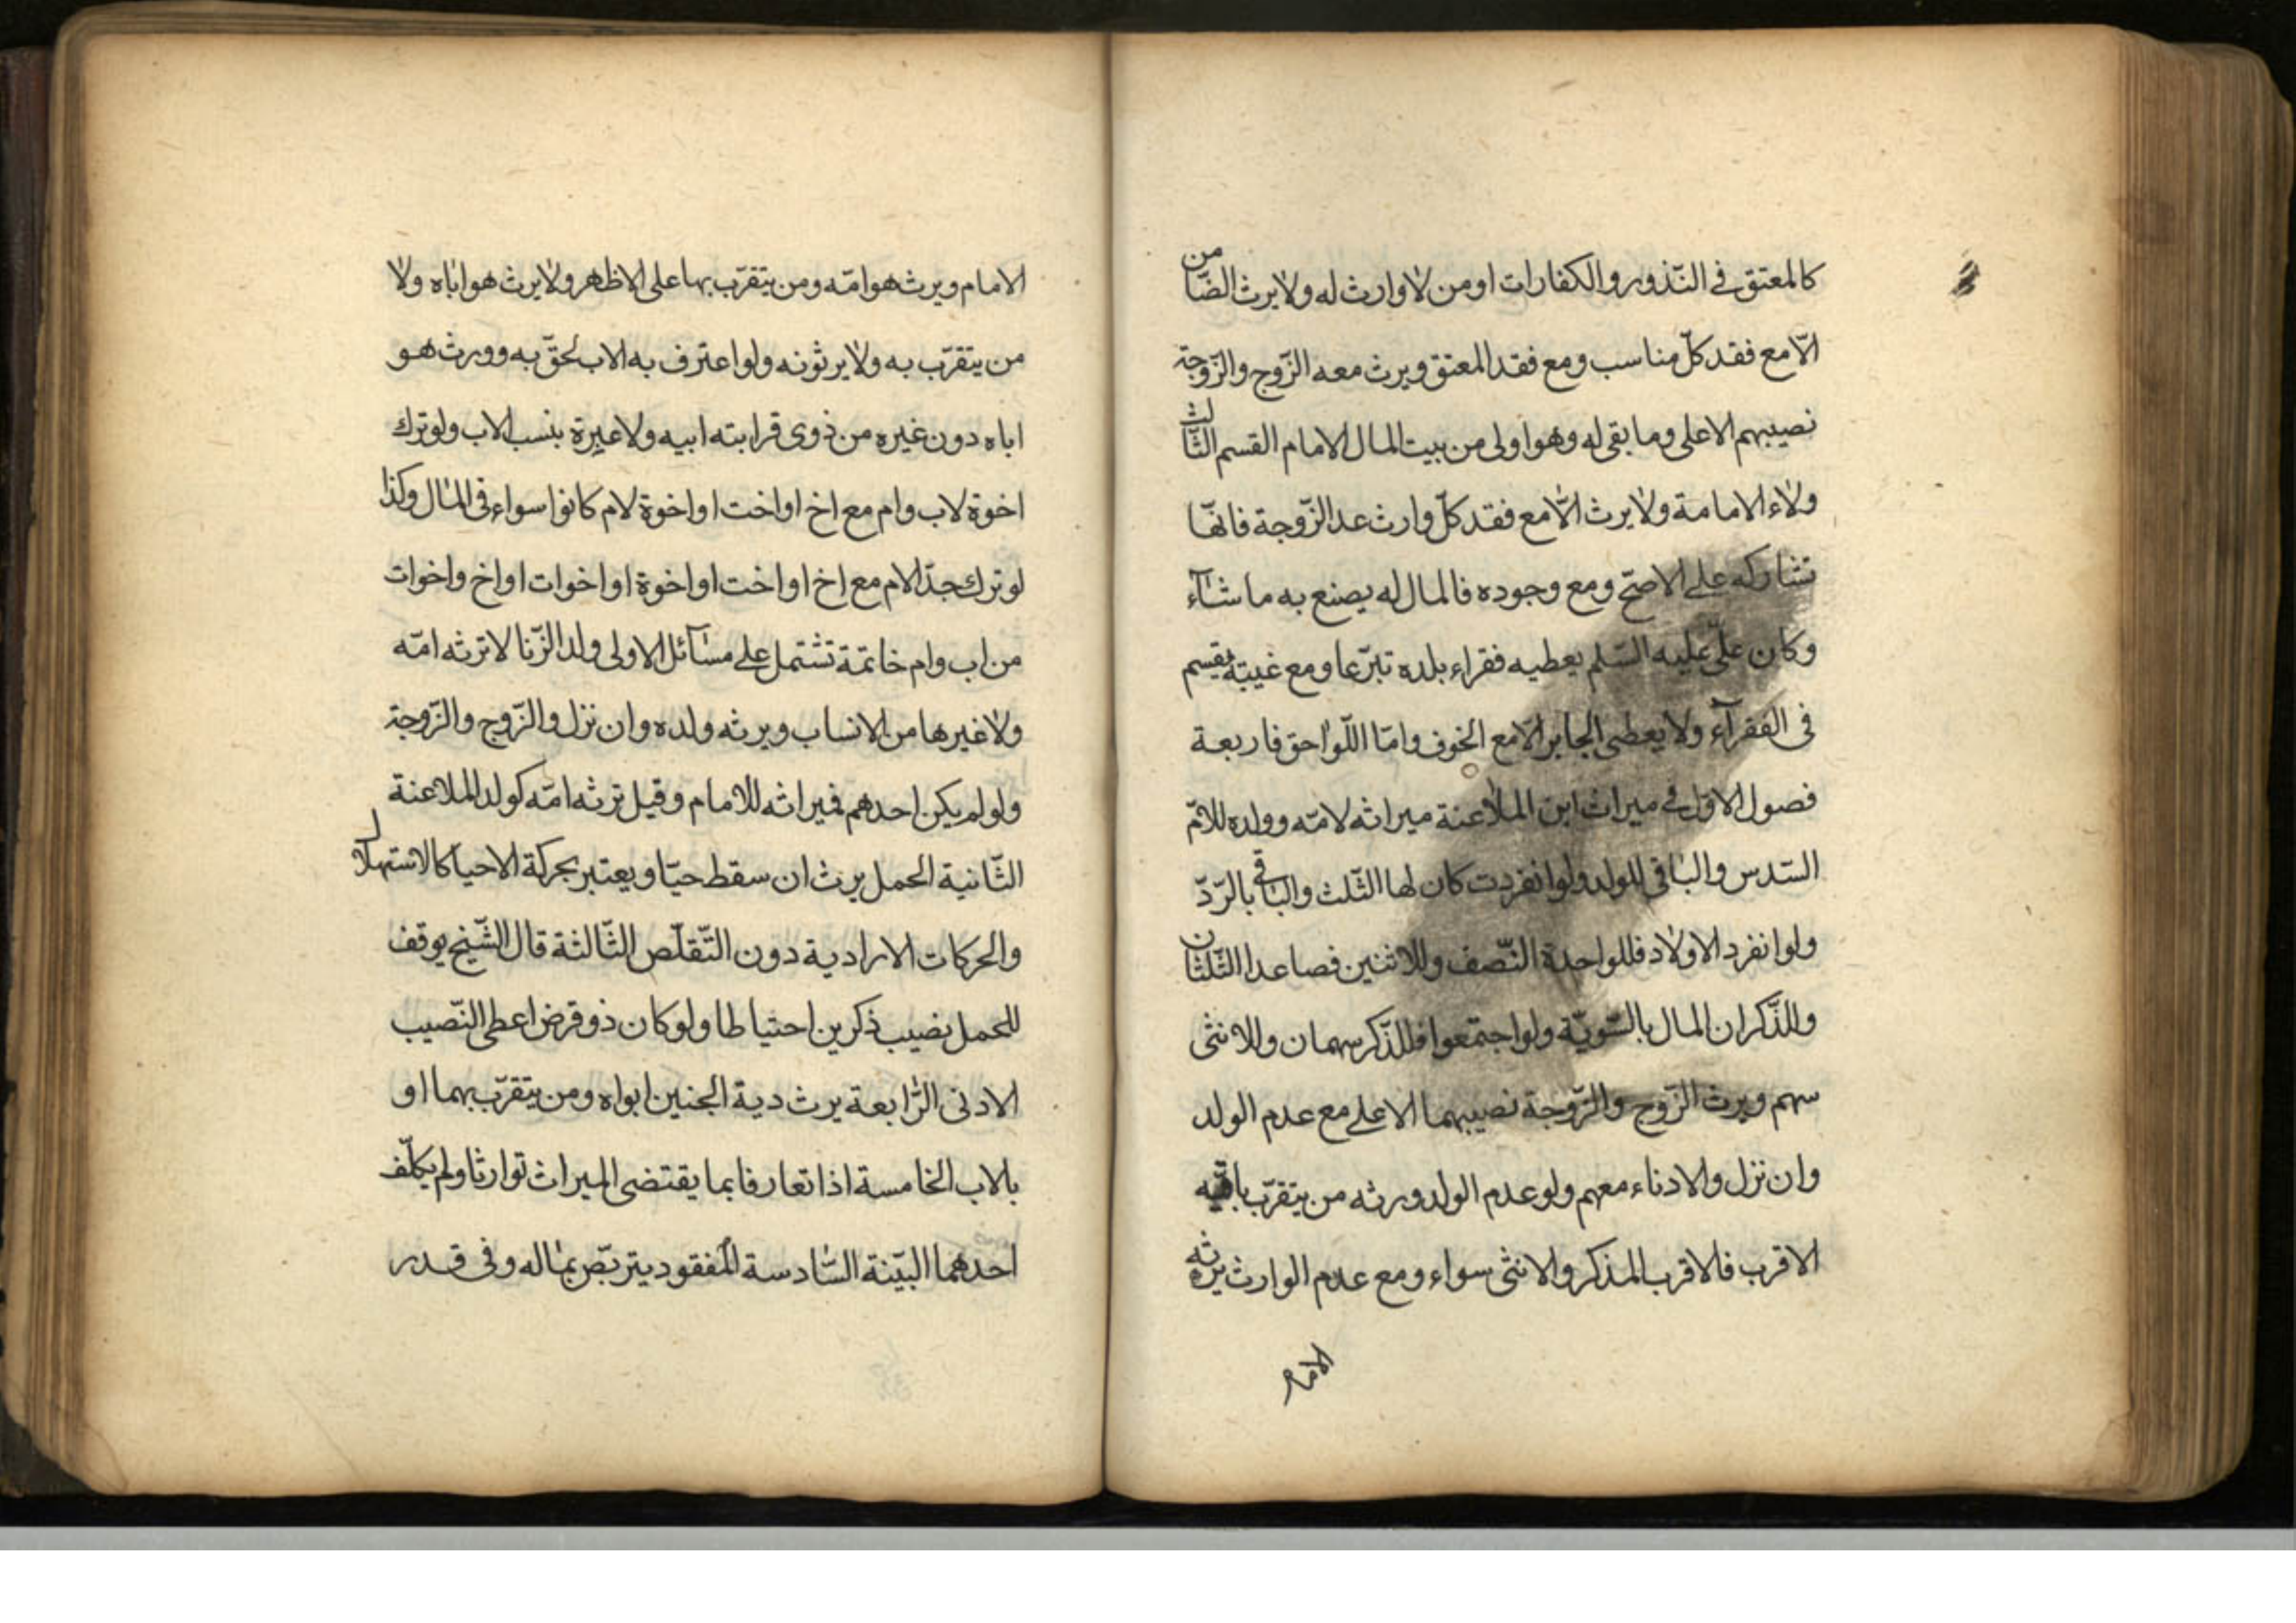 كالمعتق في النّذور والكفارات او من لا وارث له ولا يرث الضّامن
الّا مع فقد كلّ مناسب ومع فقد المعتق ويرث معه الزّوج والزّوجة
نصيبهم الاعلى وما بقى له وهو اولى من بيت المال الامام القسم الثّالث
ولاء الامامة ولا يرث الّا مع فقد كلّ وارث عد الزّوجة فانهّا
تشاركه على الاصحّ ومع وجوده فالمال له يصنع به ما شآء
وكان علّى عليه السّلم يعطيه فقراء بلده تبرّعا ومع غيبته يقسم
فى الفقرآء ولا يعطى الجابر الّا مع الخوف وامّا اللّواحق فاربعة
فصول الاوّل في ميراث ابن الملاعنة ميراثه لامّه وولده للامّ
السّدس والباقى للولد ولو انفردت كان لها الثّلث والباقى بالرّدّ
ولو انفرد الاولاد فللواحدة النّصف وللاثنين فصاعدا الثّلثان
وللذّكران المال بالسّويّة ولو اجتمعوا فللذّكر سهمان وللانثى
سهم ويرث الزّوج والزّوجة نصيبهما الاعلى مع عدم الولد
وان نزل والادناء معهم ولو عدم الولد ورثه من يتقرّب بامّه
الاقرب فالاقرب المذكر والانثى سواء ومع عدم الوارث يرثه
الامام
الامام ويرث هو امّه ومن يتقرّب بها على الاظهر ولا يرث هو اباه ولا
من يتقرّب به ولا يرثونه ولو اعترف به الاب لحقّ به وورث هو
اباه دون غيره من ذوى قرابته ابيه ولا عبرة بنسب الاب ولو ترك
اخوة لاب وام مع اخ او اخت او اخوة لام كانوا سواء فى المال وكذا
لو ترك جدّ الام مع اخ او اخت او اخوة او اخوات او اخ واخوات
من اب وام خاتمة تشتمل على مسآئل الاولى ولد الزّنا لا ترثه امّه
ولا غيرها من الانساب ويرثه ولده وان نزل والزّوج والزّوجة
ولو لم يكن احدهم فميراثه للامام وقيل ترثه امّه كولد الملاعنة
الثّانية الحمل يرث ان سقط حيّا ويعتبر بحركة الاحيا كالاستهلال
والحركات الارادية دون التّقلّص الثّالثة قال الشّيخ يوقف
للحمل نصيب ذكرين احتياطا ولو كان ذو فرض اعطى النّصيب
الادنى الرّابعة يرث دية الجنين ابواه ومن يتقرّب بهما او
بالاب الخامسة اذا تعارفا بما يقتضى الميراث توارثا ولم يكلّف
احدهما البيّنة السّادسة المفقود يتربّص بماله وفى قدر